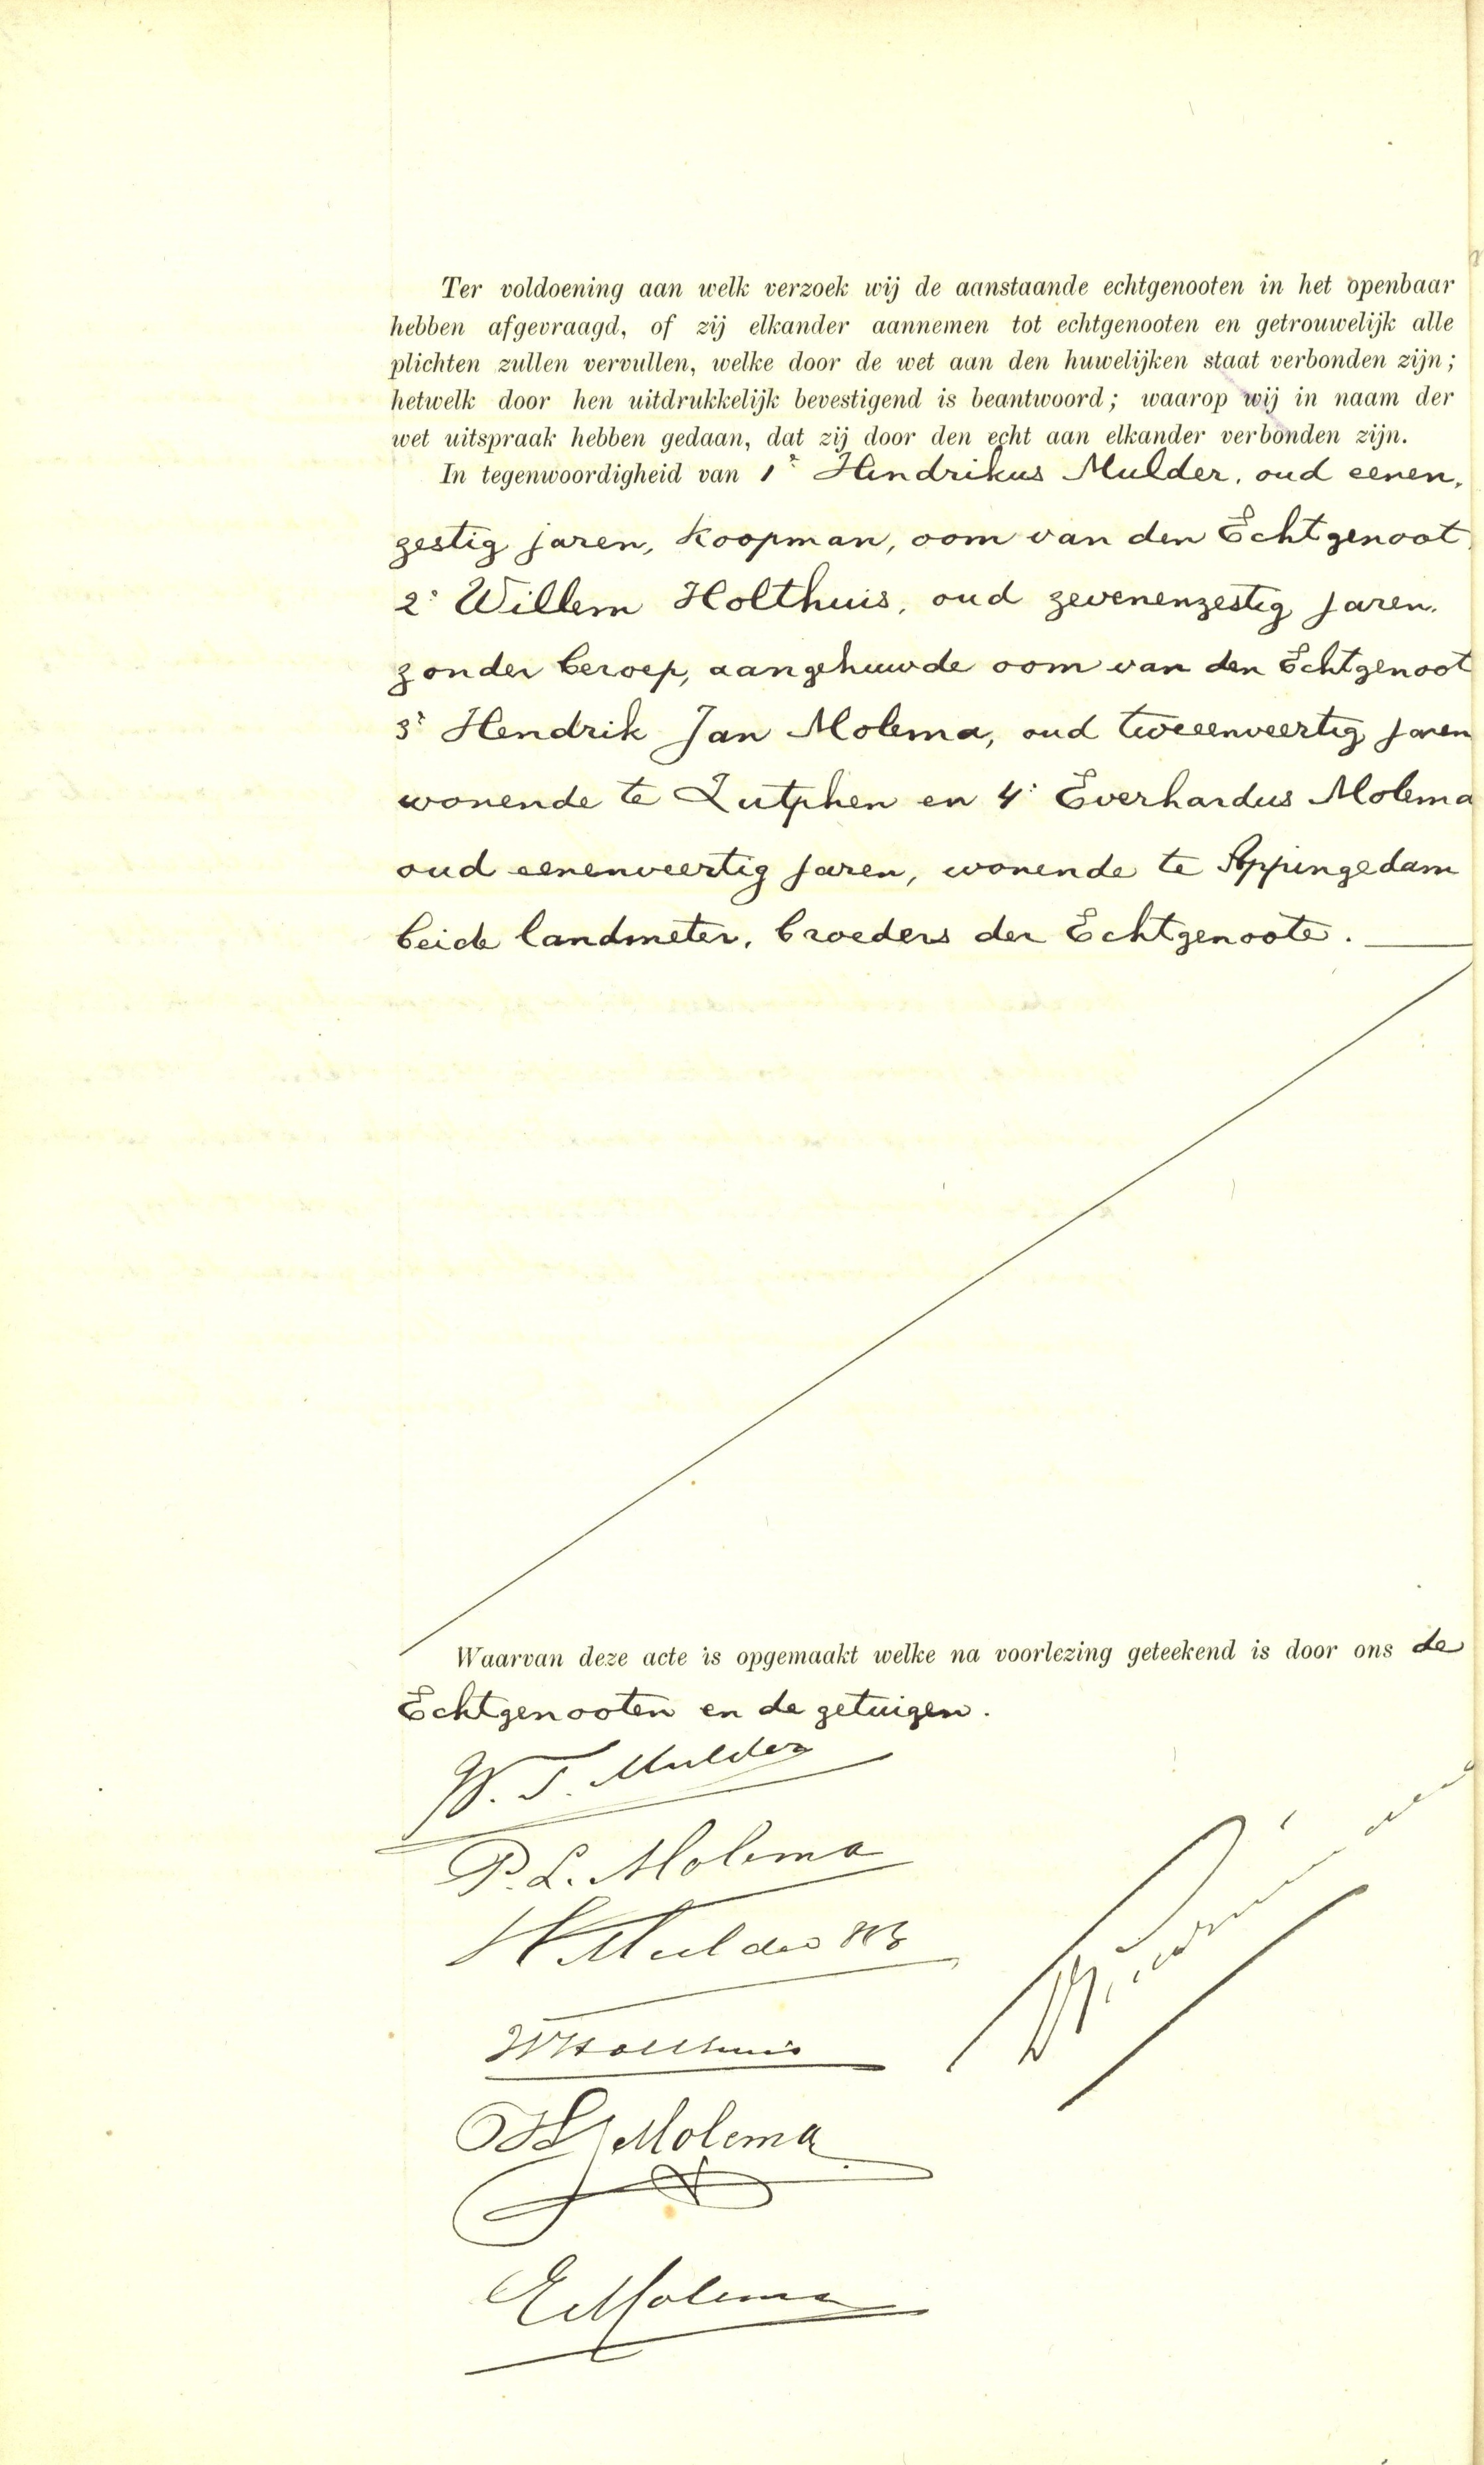 Ter voldoening aan welk verzoek wij de aanstaande echtgenooten in het openbaar
hebben afgevraagd, of zij elkander aannemen tot echtgenooten en getrouwelijk alle
plichten zullen vervullen, welke door de wet aan den huwelijken staat verbonden zijn;
hetwelk door hen uitdrukkelijk bevestigend is beantwoord; waarop wij in naam der
wet uitspraak hebben gedaan, dat zij door den echt aan elkander verbonden zijn.
In tegenwoordigheid van 1° Hendrikus Mulder, oud eenen,
zestig jaren, koopman, oom van den Echtgenoot,
2° Willem Holthuis, oud zevenenzestig jaren,
zonder beroep, aangehuwde oom van den Echtgenoot
3° Hendrik Jan Molema, oud tweeenveertig jaren
wonende te Zutphen en 4° Everhardus Molema
oud eenenveertig jaren, wonende te Appingedam
beide landmeter, broeders der Echtgenoote.
Waarvan deze acte is opgemaakt welke na voorlezing geteekend is door ons de
Echtgenooten en de getuigen.
W. T. Mulder
P. L. Molema
H Mulder
W Holthuis
HJ Molema
E Molema